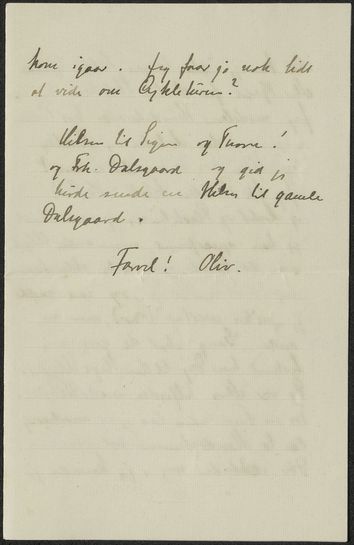 kom igaar. Jeg faar jo nok lidt
at vide om Cykleturen?
Hilsen til Signe og Snorre!
og Frk. Dalsgaard og gid jeg
turde sende en Hilsen til gamle
Dalsgaard.
Farvel! Oliv.